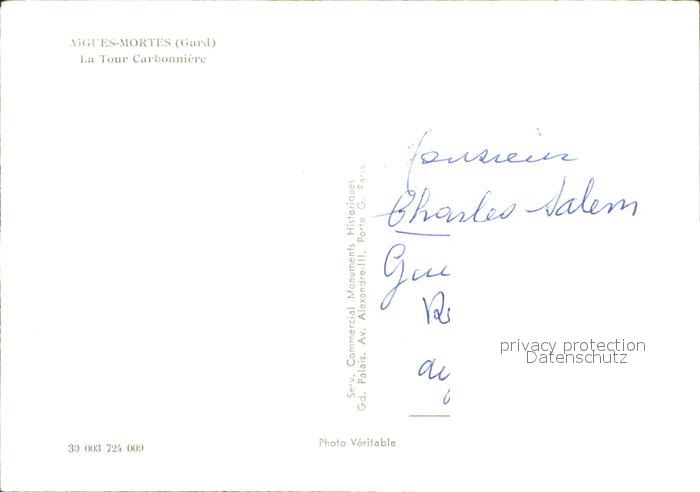 AIGUES-MORTES (Gard)
La Tour Carbonnière
Monsieur
Charles Salem
Serv. Commercial Monuments Historiques
Gd. Palais. Av. Alexandre-III. Porte G. Paris
privacy protection
Datenschutz
Photo Véritable
30 003 724 009